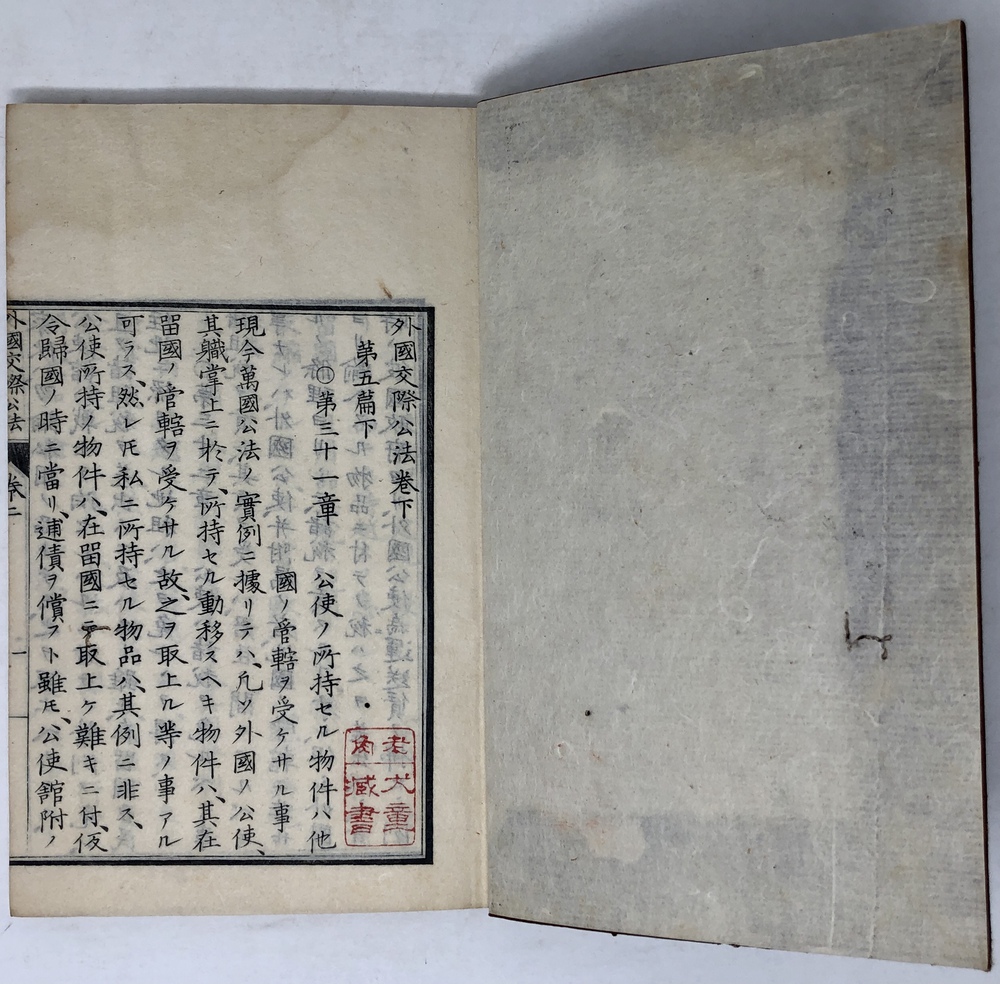 外國交際公法卷下
第五篇下
○第三十一章 公使ノ所持セル物件ハ他
國ノ管轄ヲ受ケサル事
現今萬國公法ノ實例ニ據リテハ、凡ソ外國ノ公使、
其職掌上ニ於テ、所持セル動移スヘキ物件ハ、其在
留國ノ管轄ヲ受ケサル故、之ヲ取上ル等ノ事アル
可ラス、然レ𪜈私ニ所持セル物品ハ、其例ニ非ス、
公使所持ノ物件ハ、在留國ニテ取上ケ難キニ付、仮
令歸國ノ時ニ當リ、逋債ヲ償フト雖𪜈、公使館附ノ
外國交際公法 卷二 一
老犬童
內藏書